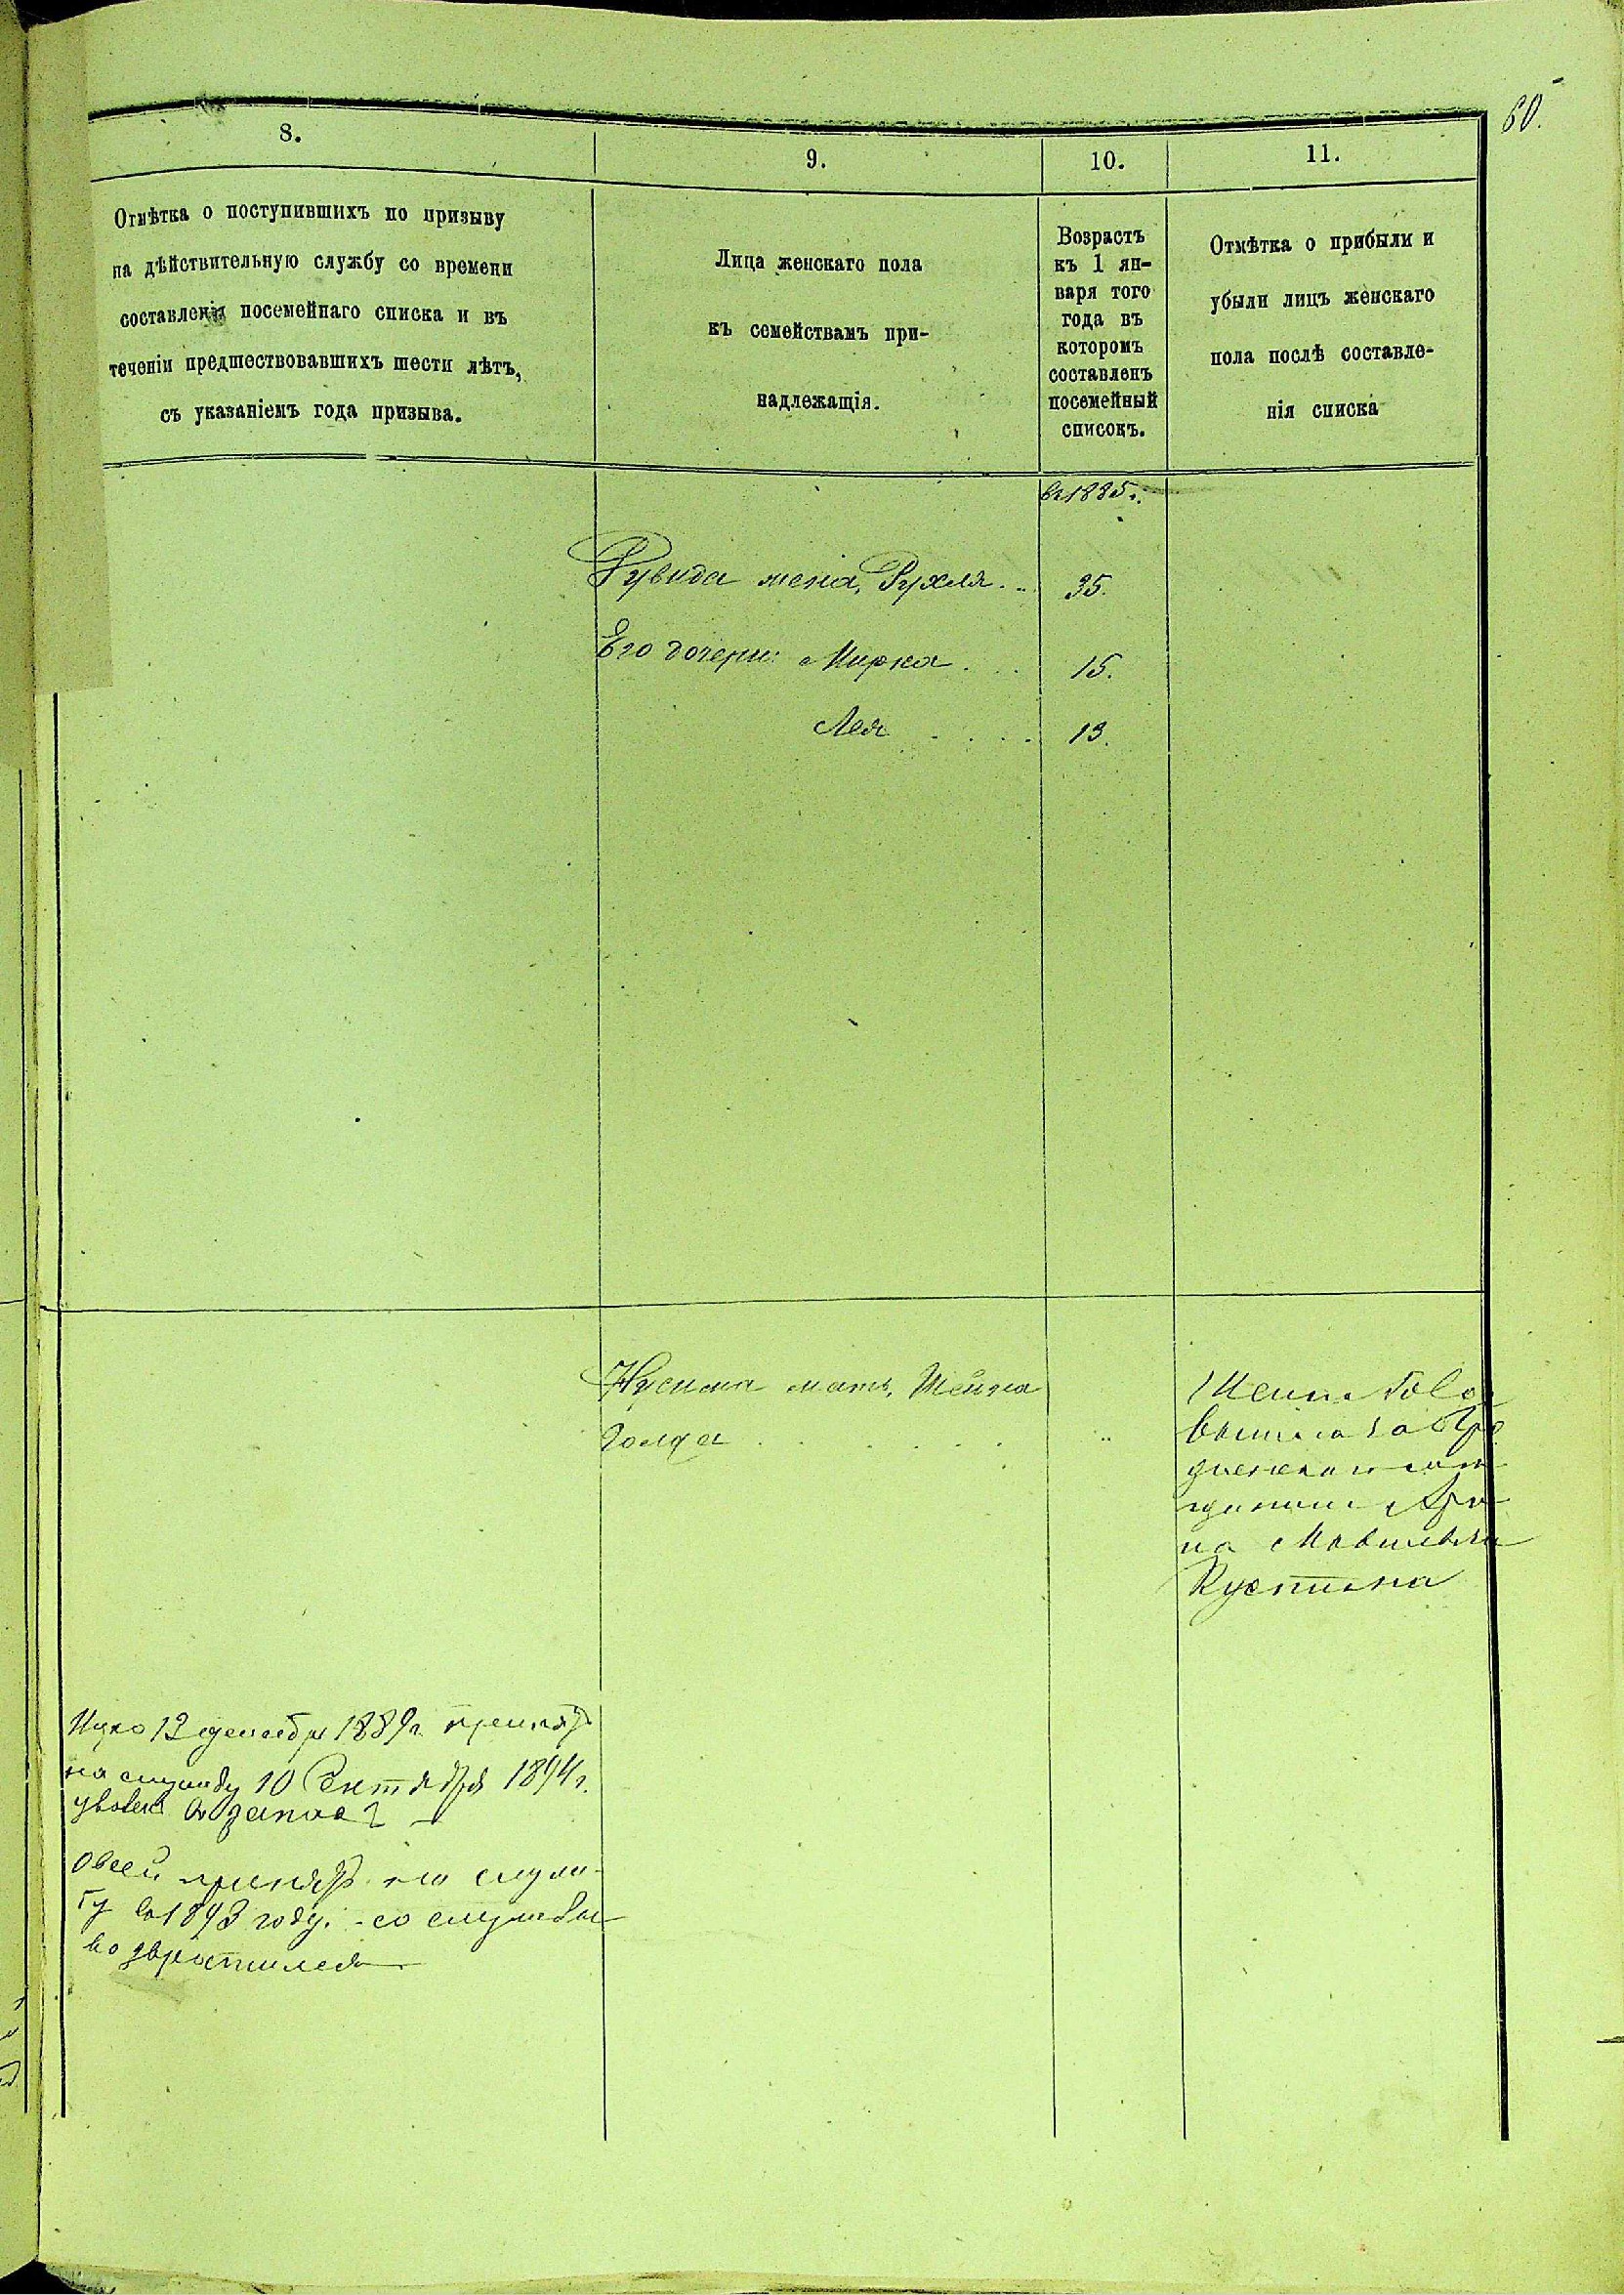 60.
8.
Отмѣтка о поступившихъ по призыву
на дѣйствительную службу со времени
составленія посемейнаго списка и въ
теченіи предшествовавшихъ шести лѣтъ,
съ указаніемъ года призыва.
9.
Лица женскаго пола
къ семействамъ при-
надлежащія.
10.
Возрастъ
къ 1 ян-
варя того
года въ
которомъ
составленъ
посемейный
списокъ.
11.
Отмѣтка о прибыли и
убыли лицъ женскаго
пола послѣ составле-
нія списка
въ 1885 г.
Рувида жена, Рухля . . 35.
Его дочери: Мирка . . . 15.
Лея . . . . 13.
мать, Шейна
Голда . . . . . . "
вышла за
на Мовшевича
13 декабря 1889 г. принятъ
на службу 10 Сентября 1894 г.
уволенъ въ запасъ
Овсей принятъ на служ-
бу въ 1893 году. со службы
возвратился